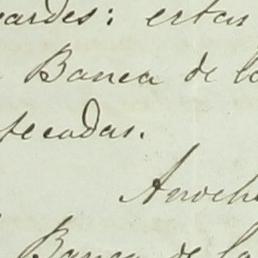 ardes: estas
Banca de la
tecadas.
Anoche
Banca de la